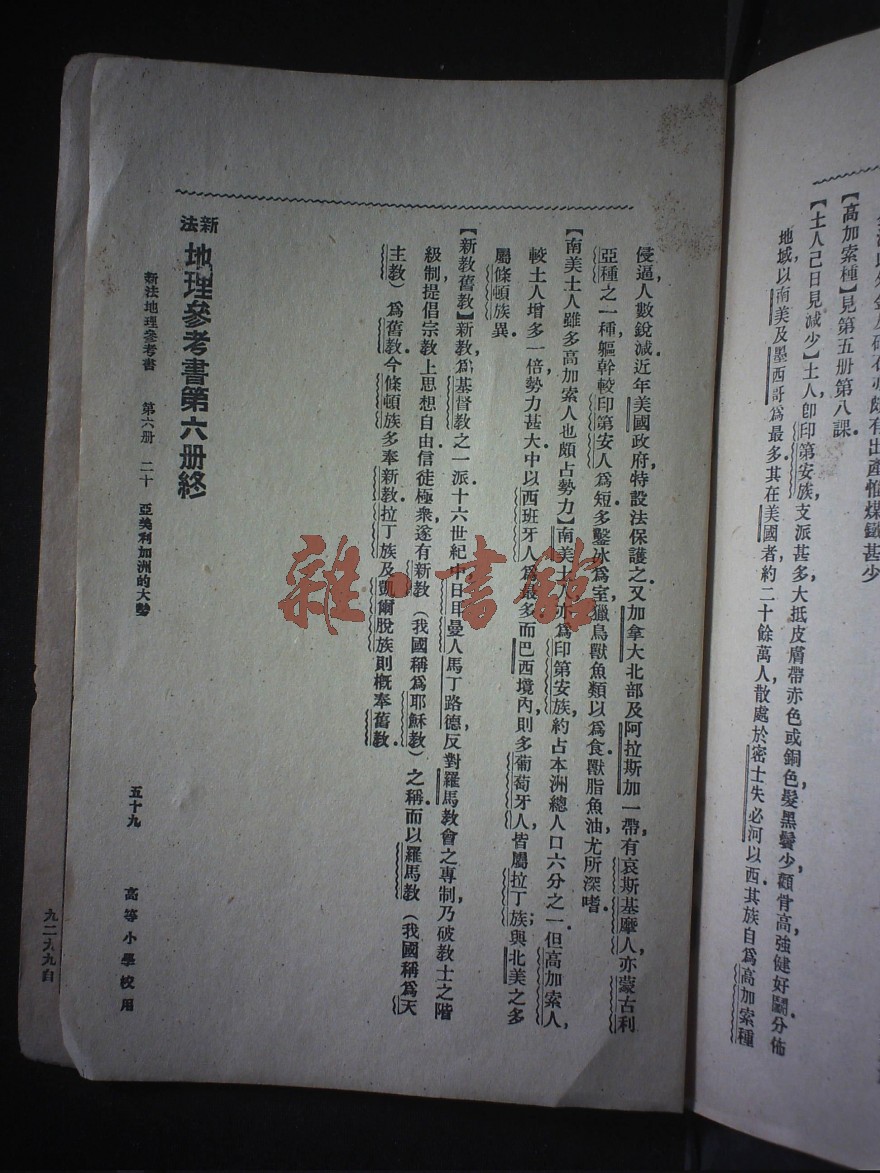 金剛以外金及硝石亦頗有出產惟煤鐵甚少
【高加索種】見第五册第八課.
【土人已日見減少】土人卽印第安族,支派甚多,大抵皮膚帶赤色或銅色,髮黑鬢少,顴骨高,強健好鬭,分佈
地域,以南美及墨西哥爲最多.其在美國者,約二十餘萬人,散處於密士失必河以西.其族自爲高加索種
侵逼,人數銳減,近年美國政府特設法保護之.又加拿大北部及阿拉斯加一帶,有哀斯基摩人,亦蒙古利
亞種之一種,軀幹較印第安人爲短,多鑿冰爲室,獵鳥獸魚類以爲食.獸脂魚油,尤所深嗜.
【南美土人雖多高加索人也頗占勢力】南美土人,亦爲印第安族,約占本洲總人口六分之一.但高加索人,
較土人增多一倍,勢力甚大.中以西班牙人爲最多,而巴西境內,則多葡萄牙人,皆屬拉丁族;與北美之多
屬條頓族異.
【新教舊教】新教爲基督教之一派,十六世紀中,日耳曼人馬丁路德反對羅馬教會之專制,乃破教士之階
級制,提倡宗教上思想自由,信徒極衆,遂有新教(我國稱爲耶穌教)之稱.而以羅馬教(我國稱爲天
主教)爲舊教.今條頓族多奉新教,拉丁族及凱爾脫族則概奉舊教.
新法 地理參考書第六册終
新法地理參考書 第六册 二十 亞美利加洲的大勢 五十九 高等小學校用
九二六九自
雜·書館